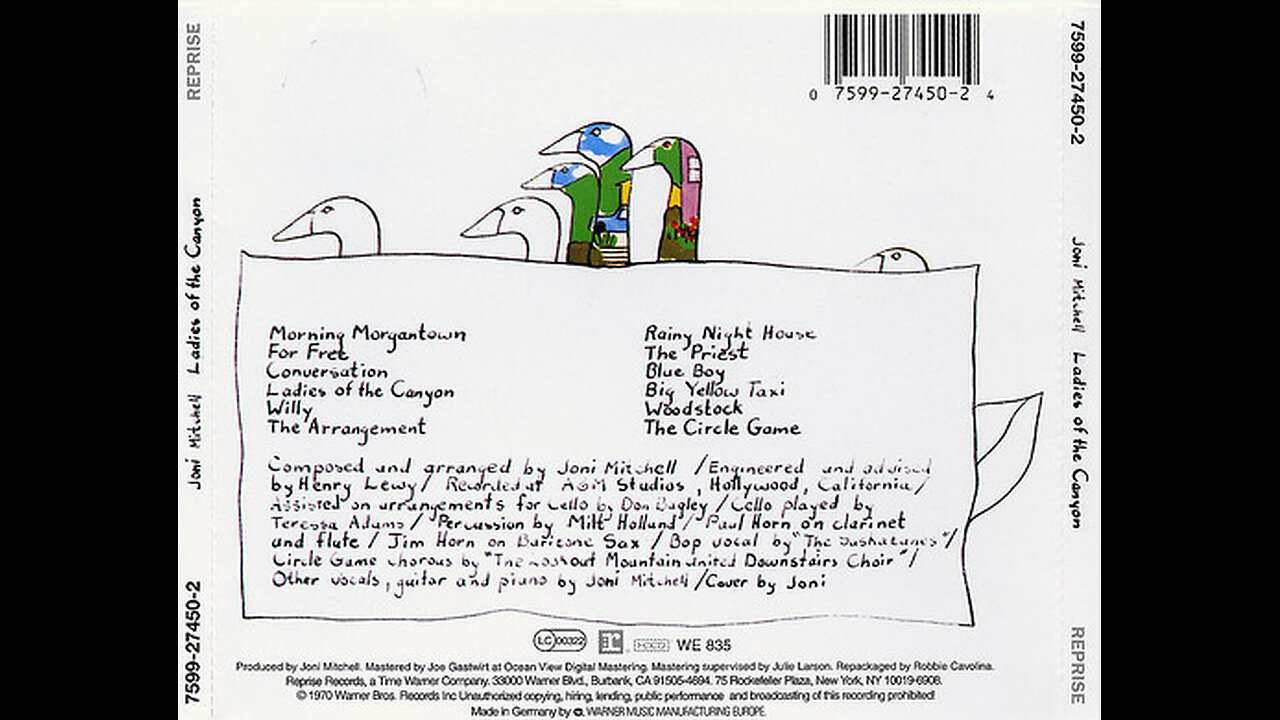 REPRISE
Joni Mitchell Ladies of the Canyon
7599-27450-2
0 7599-27450-2 4
7599-27450-2
Joni Mitchell Ladies of the Canyon
REPRISE
Morning Morgantown
For Free
Conversation
Ladies of the Canyon
Willy
The Arrangement
Rainy Night House
The Priest
Blue Boy
Big Yellow Taxi
Woodstock
The Circle Game
Composed and arranged by Joni Mitchell / Engineered and advised
by Henry Lewy / Recorded at A&M Studios, Hollywood, California /
Assisted on arrangements for Cello by Don Bagley / Cello played by
Teressa Adams / Percussion by Milt Holland / Paul Horn on clarinet
and flute / Jim Horn on Baritone Sax / Bop vocal by "The Saskatunes" /
Circle Game chorous by "The Lookout Mountain united Downstairs Choir" /
Other vocals, guitar and piano by Joni Mitchell / Cover by Joni
LC 00322 WE 835
Produced by Joni Mitchell. Mastered by Joe Gastwirt at Ocean View Digital Mastering. Mastering supervised by Julie Larson. Repackaged by Robbie Cavolina.
Reprise Records, a Time Warner Company. 33000 Warner Blvd., Burbank, CA 91505-4694. 75 Rockefeller Plaza, New York, NY 10019-6908.
© 1970 Warner Bros. Records Inc Unauthorized copying, hiring, lending, public performance and broadcasting of this recording prohibited!
Made in Germany by WARNER MUSIC MANUFACTURING EUROPE.